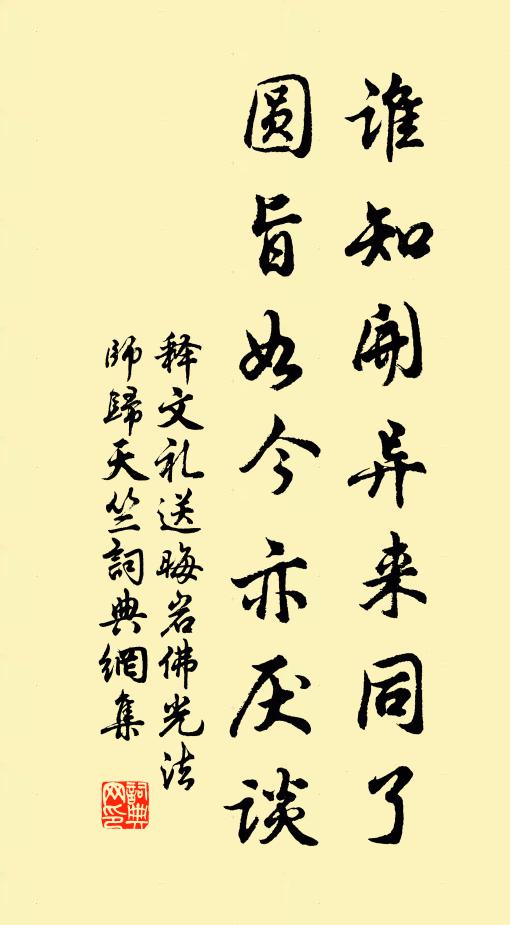 谁知開异来同了
圆旨如今亦厌谈
释文礼送晦岩佛光法
师歸天竺詞典網集
詞典
网印